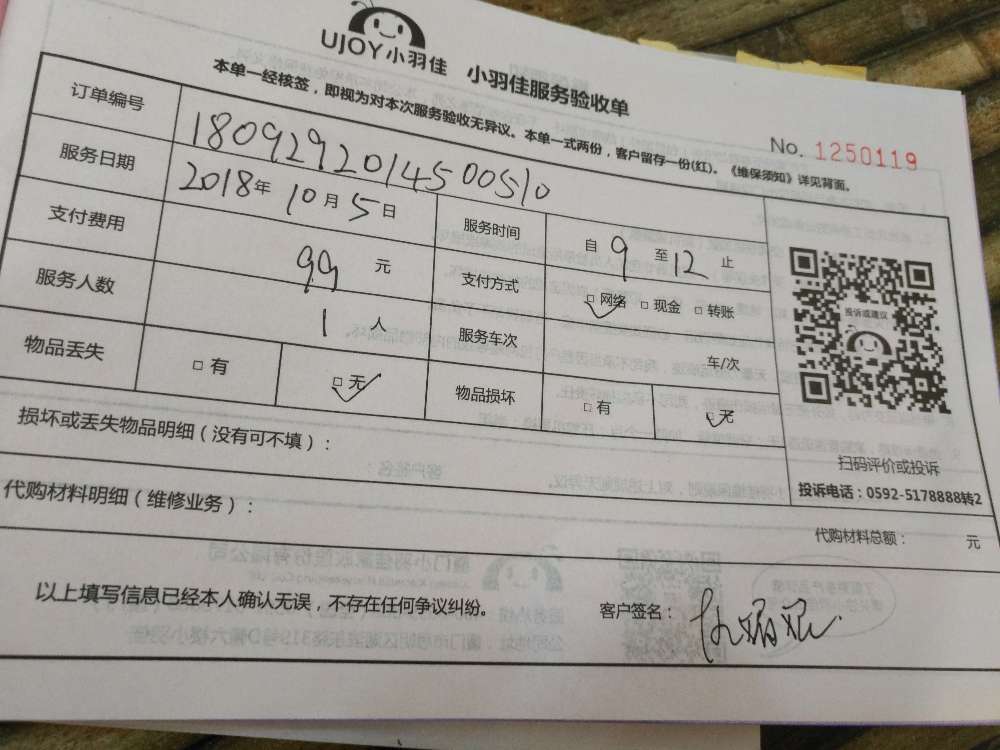 UJOY小羽佳 小羽佳服务验收单
本单一经核签，即视为对本次服务验收无异议。本单一式两份，客户留存一份(红)。《维保须知》详见背面。
No. 1250119
订单编号 1809292014500510
服务日期 2018年10月5日 服务时间 自9至12止
支付费用 99元 支付方式 □网络 □现金 □转账
服务人数 1人 服务车次 车/次
物品丢失 □有 □无 物品损坏 □有 □无
投诉或建议
扫码评价或投诉
投诉电话：0592-5178888转2
损坏或丢失物品明细（没有可不填）：
代购材料明细（维修业务）：
代购材料总额： 元
以上填写信息已经本人确认无误，不存在任何争议纠纷。 客户签名：